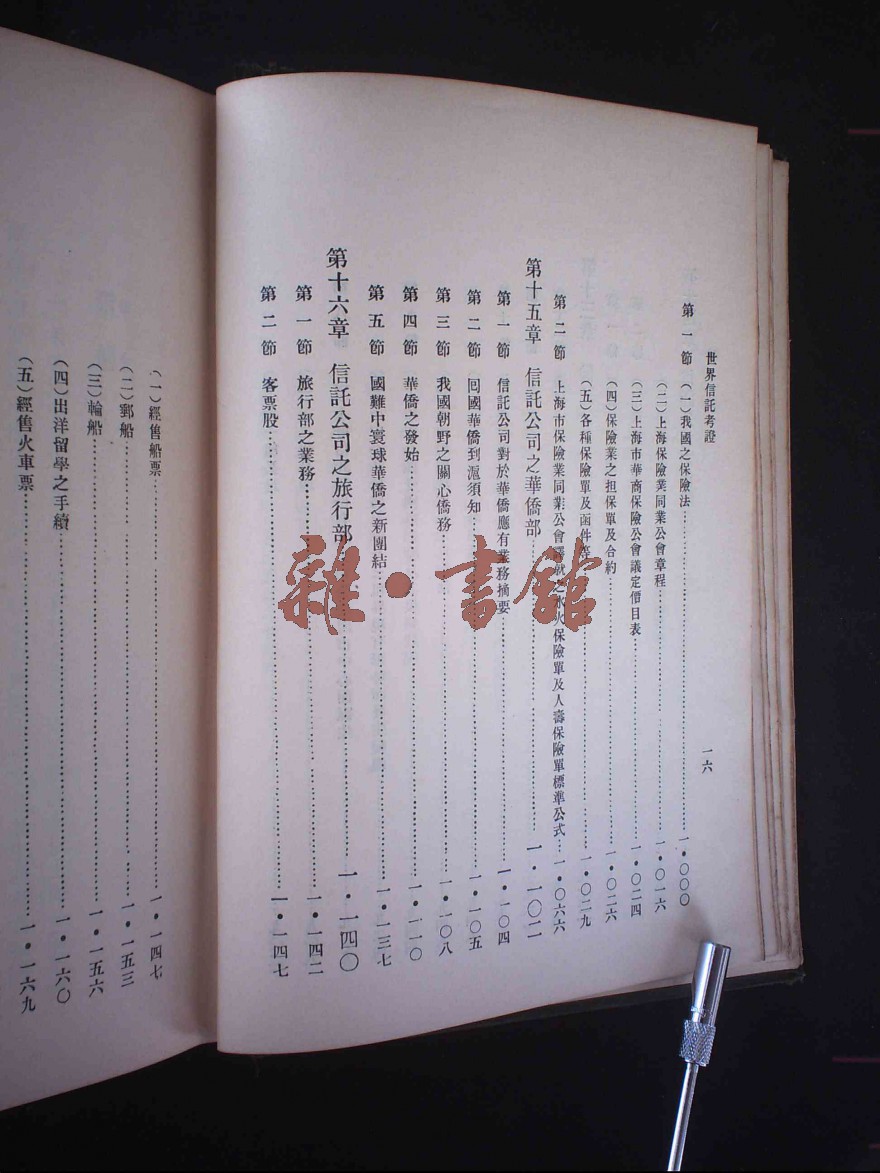 世界信託考證 一六
第一節 (一)我國之保險法……一・〇〇〇
(二)上海保險業同業公會章程……一・〇一六
(三)上海市華商保險公會議定價目表……一・〇二四
(四)保險業之担保單及合約……一・〇二六
(五)各種保險單及函件等……一・〇二九
第二節 上海市保險業同業公會譯就之水火保險單及人壽保險單標準公式…一・〇六六
第十五章 信託公司之華僑部……一・一〇二
第一節 信託公司對於華僑應有業務摘要……一・一〇四
第二節 回國華僑到滬須知……一・一〇五
第三節 我國朝野之關心僑務……一・一〇八
第四節 華僑之發始……一・一一〇
第五節 國難中寰球華僑之新團結……一・一三七
第十六章 信託公司之旅行部……一・一四〇
第一節 旅行部之業務……一・一四二
第二節 客票股……一・一四七
(一)經售船票……一・一四七
(二)郵船……一・一五三
(三)輪船……一・一五六
(四)出洋留學之手續……一・一六〇
(五)經售火車票……一・一六九
雜・書館